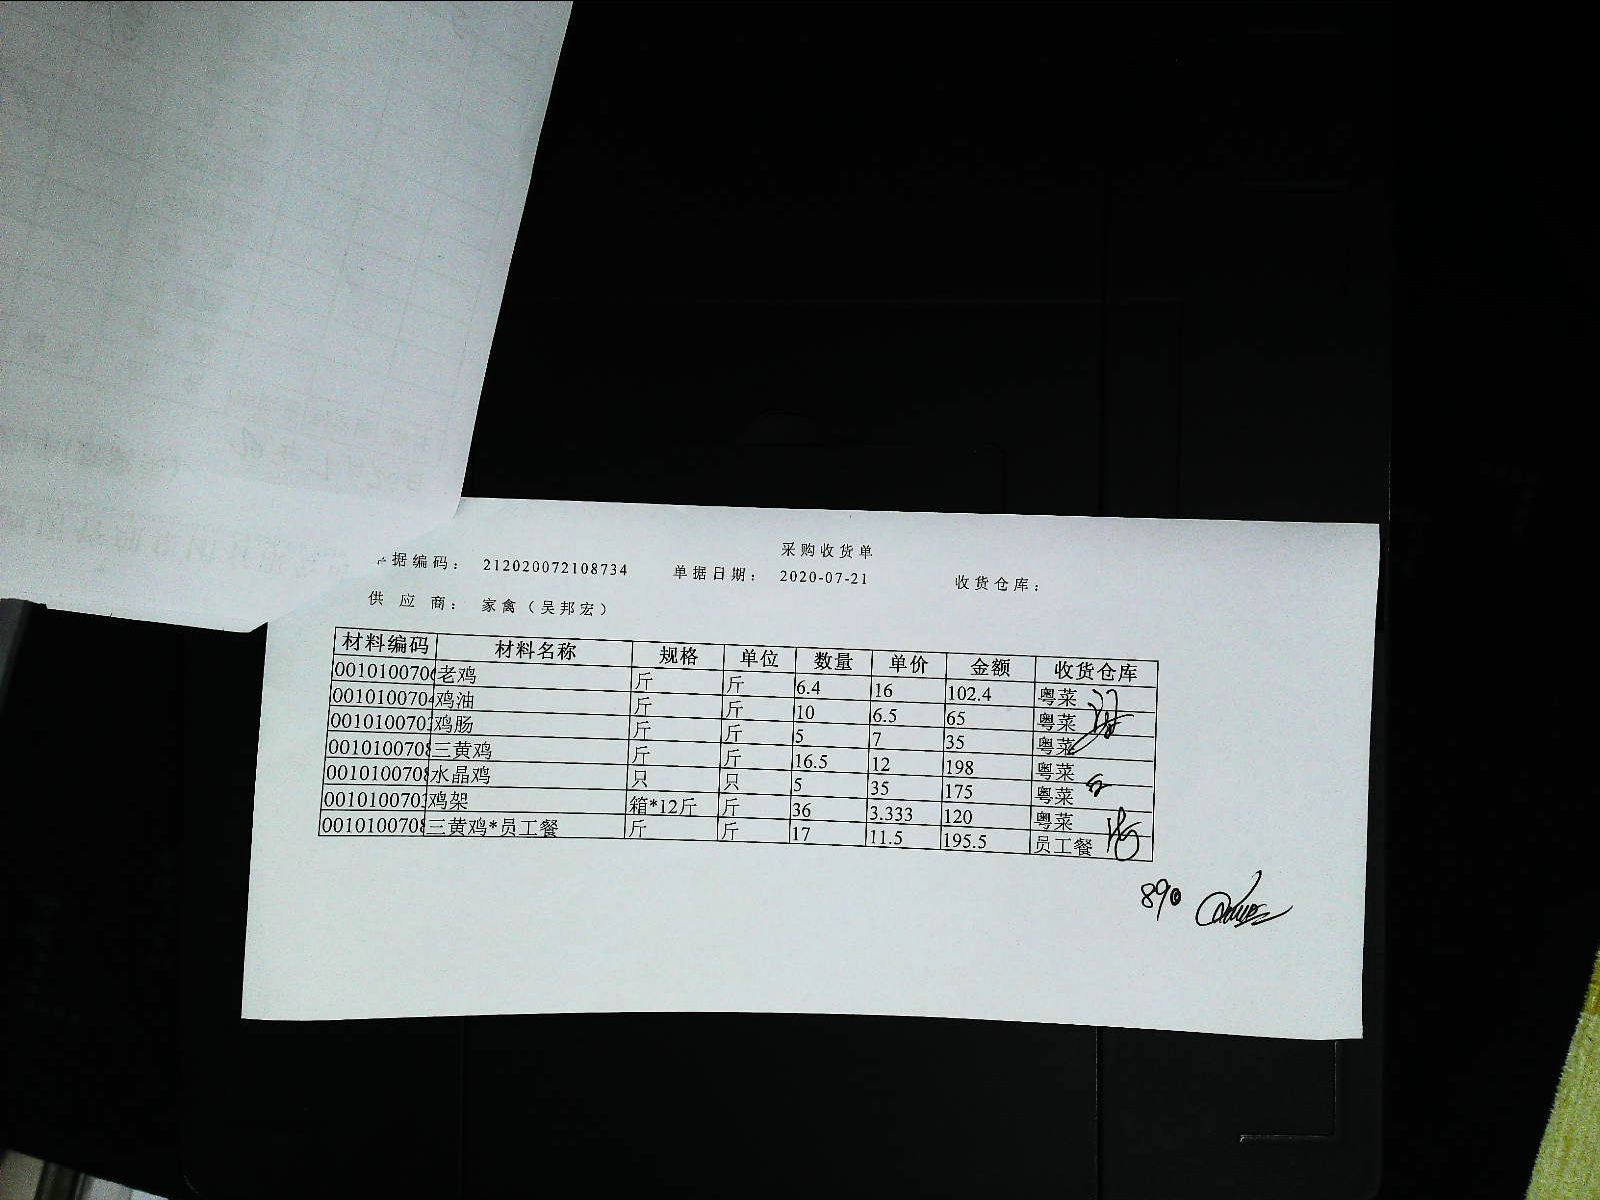 采购收货单
据编码： 212020072108734 单据日期： 2020-07-21 收货仓库：
供 应 商： 家禽（吴邦宏）
材料编码 材料名称 规格 单位 数量 单价 金额 收货仓库
001010070 老鸡 斤 斤 6.4 16 102.4 粤菜
001010070 鸡油 斤 斤 10 6.5 65 粤菜
001010070 鸡肠 斤 斤 5 7 35 粤菜
001010070 三黄鸡 斤 斤 16.5 12 198 粤菜
001010070 水晶鸡 只 只 5 35 175 粤菜
001010070 鸡架 箱*12斤 斤 36 3.333 120 粤菜
001010070 三黄鸡*员工餐 斤 斤 17 11.5 195.5 员工餐
890